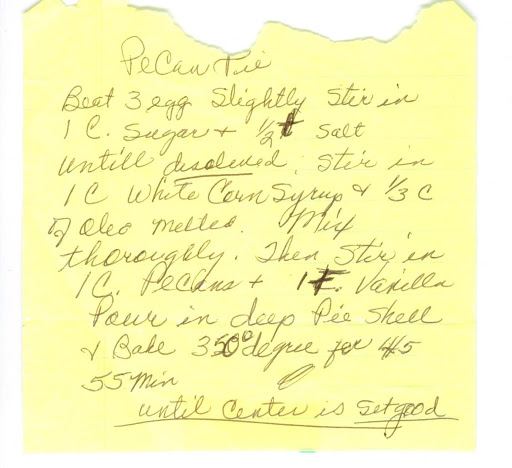 Pecan Pie
Beat 3 egg Slightly Stir in
1 C. Sugar + 1/2 t Salt
untill disolved. Stir in
1 C White Corn Syrup & 1/3 C
of Oleo melted. Mix
thoroughly. Then Stir in
1 C. Pecans + 1 t. Vanilla
Pour in deep Pie Shell
& Bake 350° degree for 45
55 Min
until Center is Set good